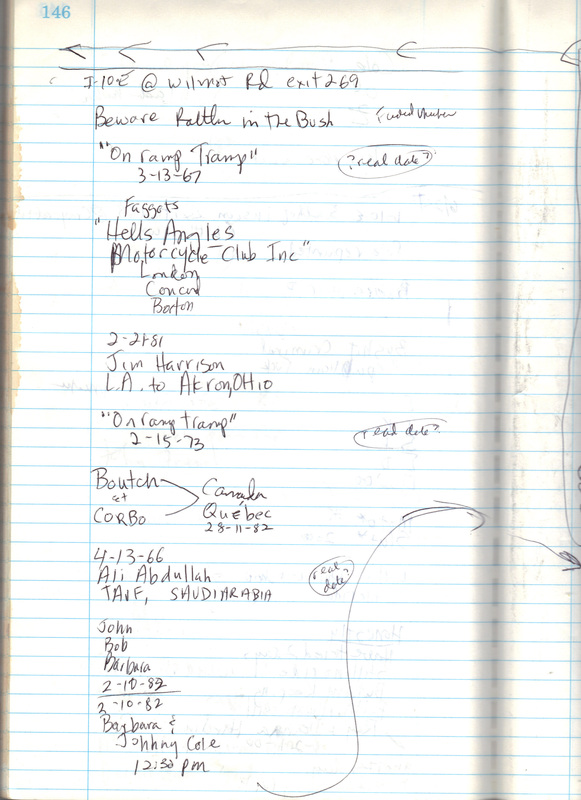 146
I-10E @ Wilmot Rd exit 269
Beware Rattler in the Bush
"On ramp Tramp"
3-13-67
? real date?
Faggots
"Hells Angles
Motorcycle Club Inc"
London
Concord
Barton
2-21-81
Jim Harrison
L.A. to Akron, OHio
"On ramp tramp"
2-15-73
real date?
Boutch
et
CORBO
Canada
Québec
28-11-82
4-13-66
Ali Abdullah
TAVF, SAUDI ARABIA
real
date?
John
Bob
Barbara
2-10-82
2-10-82
Barbara &
Johnny Cole
12:30 pm